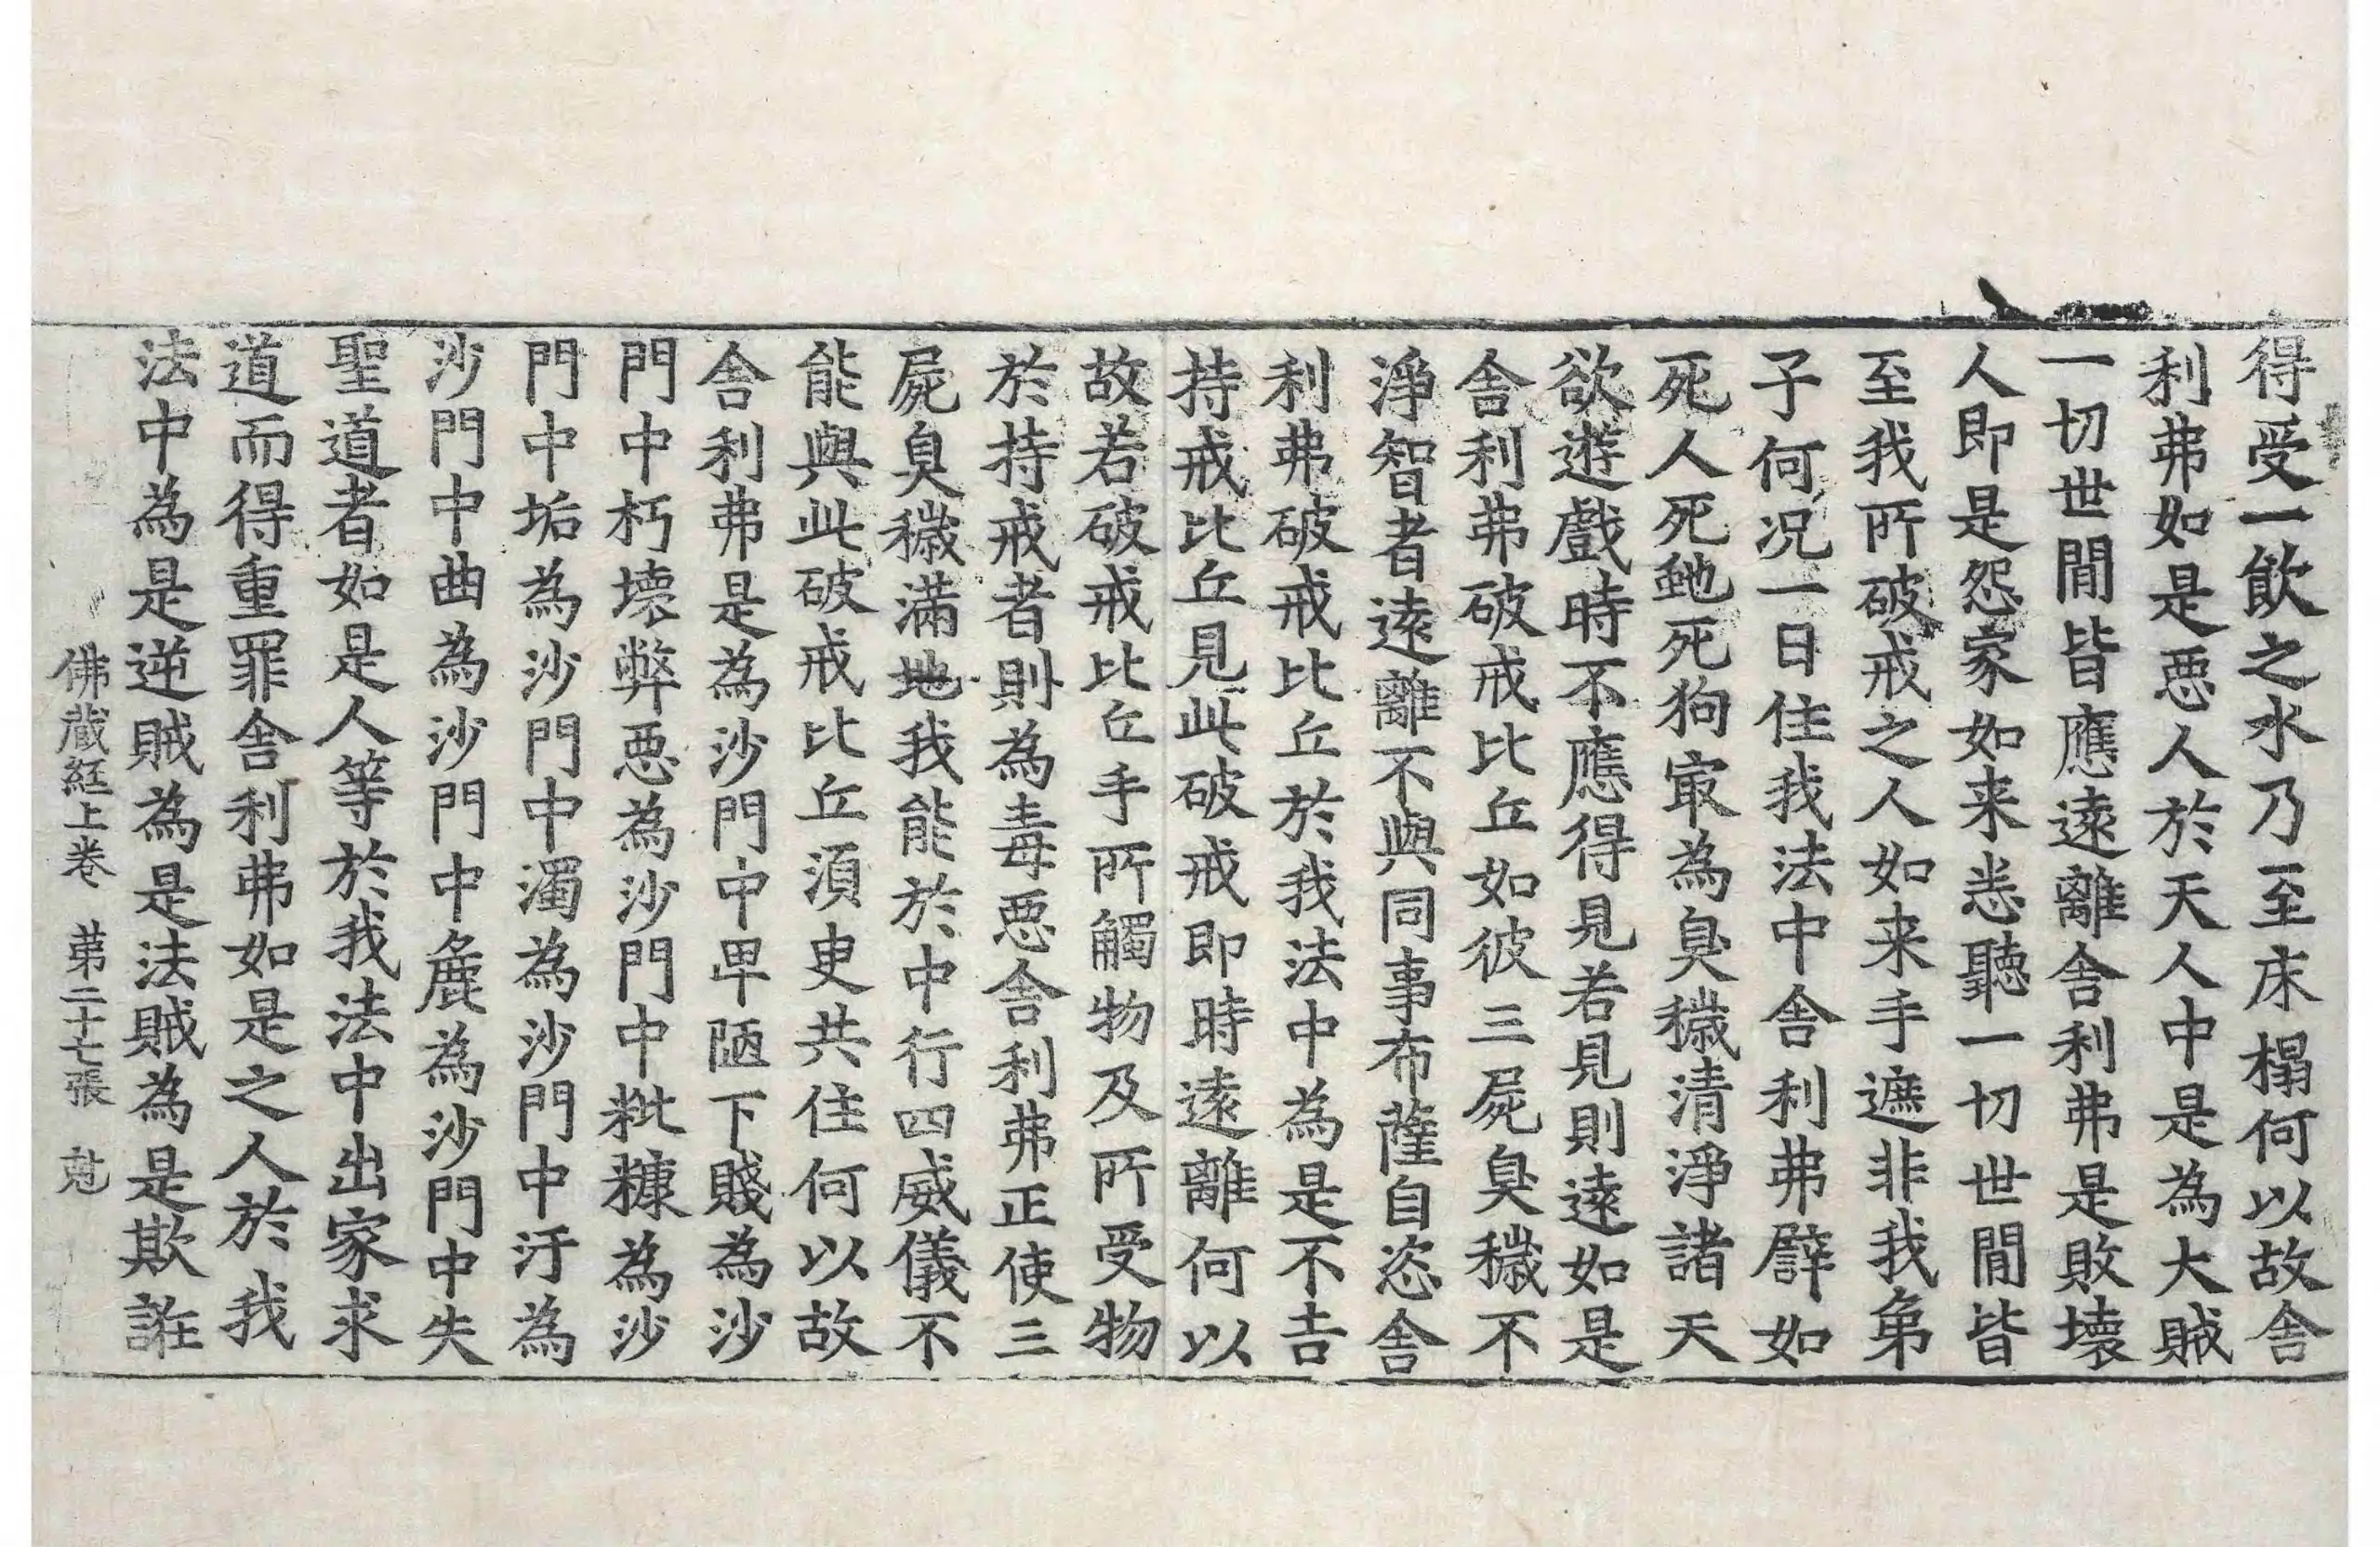 得受一飲之水乃至床榻何以故舍
利弗如是惡人於天人中是為大賊
一切世間皆應遠離舍利弗是敗壞
人即是怨家如来悉聽一切世間皆
至我所破戒之人如来手遮非我弟
子何況一日住我法中舍利弗譬如
死人死虵死狗㝡為臭穢清淨諸天
欲遊戲時不應得見若見則遠如是
舍利弗破戒比丘如彼三屍臭穢不
淨智者遠離不與同事布薩自恣舍
利弗破戒比丘於我法中為是不吉
持戒比丘見此破戒即時遠離何以
故若破戒比丘手所觸物及所受物
於持戒者則為毒惡舍利弗正使三
屍臭穢滿地我能於中行四威儀不
能與此破戒比丘須臾共住何以故
舍利弗是為沙門中卑陋下賤為沙
門中朽壞弊惡為沙門中粃糠為沙
門中垢為沙門中濁為沙門中汙為
沙門中曲為沙門中麁為沙門中失
聖道者如是人等於我法中出家求
道而得重罪舍利弗如是之人於我
法中為是逆賊為是法賊為是欺誑
佛蔵経上卷 第二十七張